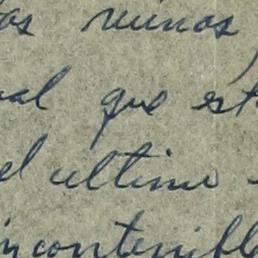 os ninos
al que est
el ultimo
incontenibl